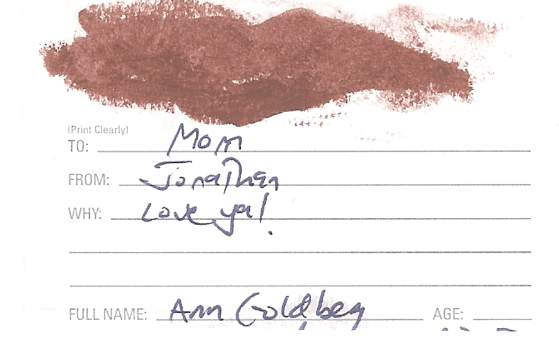 (Print Clearly)
TO: Mom
FROM: Jonathan
WHY: Love ya!
FULL NAME: Ann Goldberg AGE: